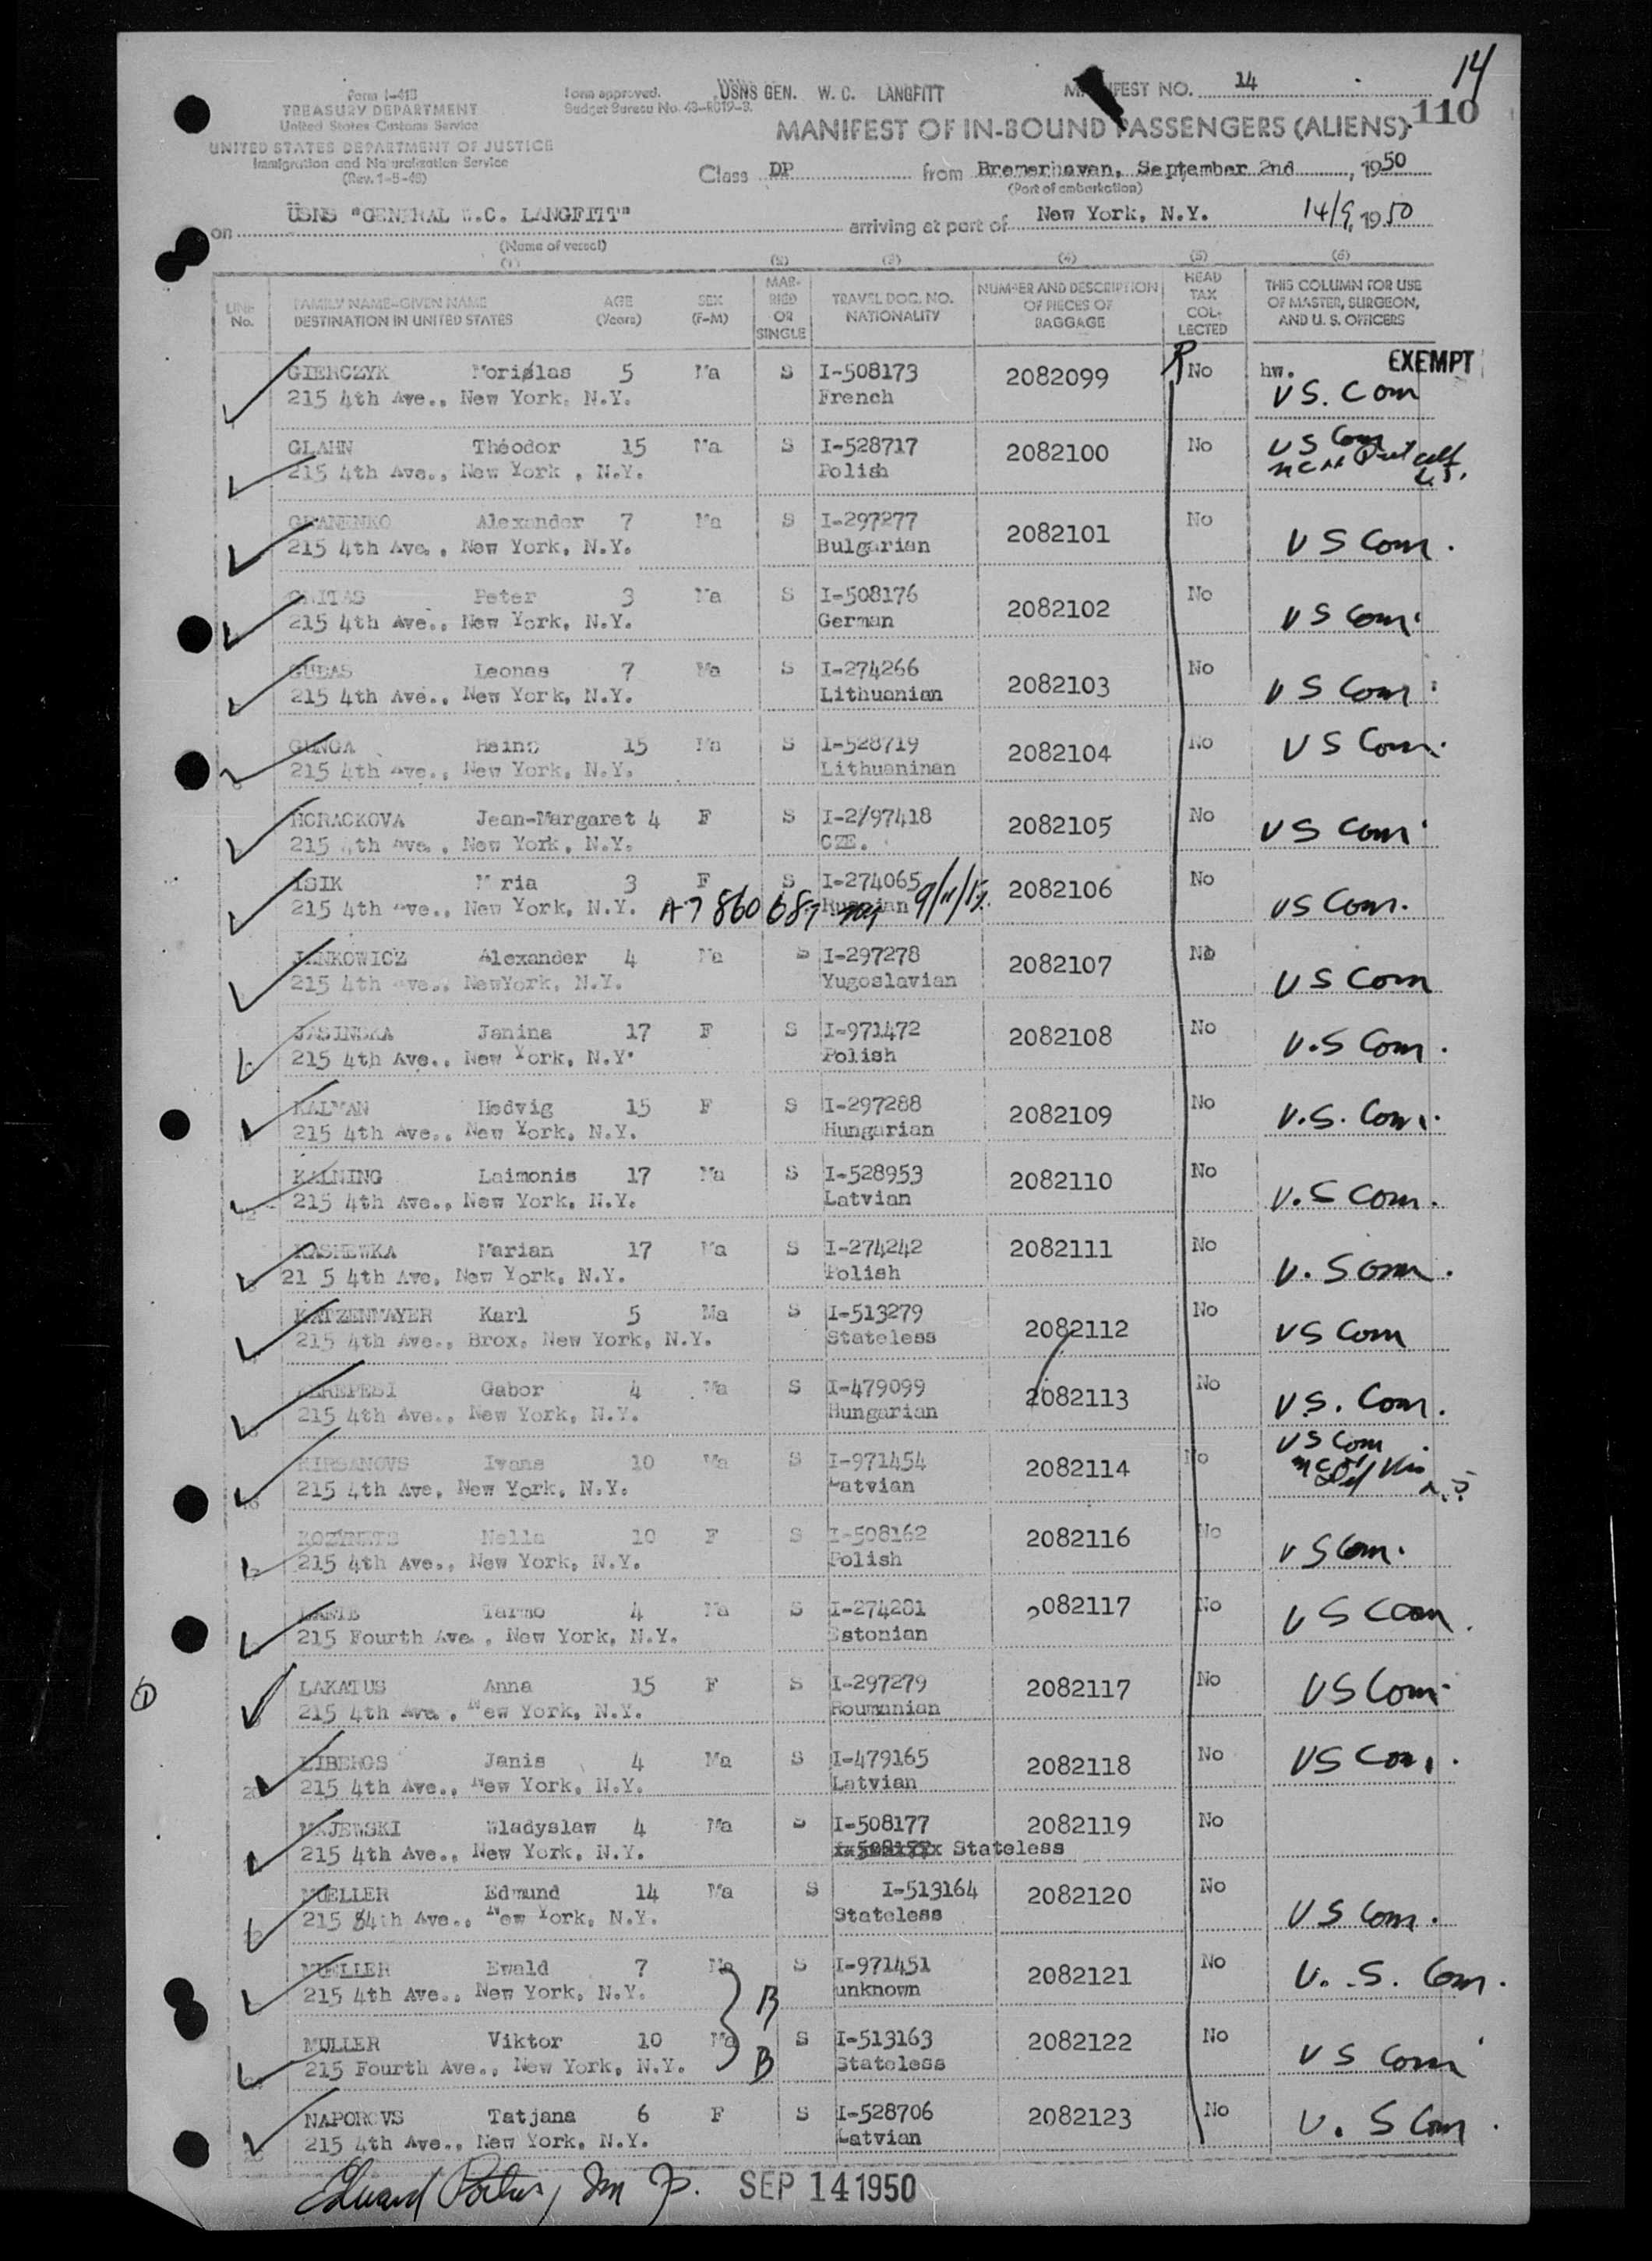 14
Form I-418
TREASURY DEPARTMENT
United States Customs Service
UNITED STATES DEPARTMENT OF JUSTICE
Immigration and Naturalization Service
(Rev. 1-5-48)
Form approved.
Budget Bureau No. 43-R019-3.
USNS GEN. W. C. LANGFITT
MANIFEST NO. 14
110
MANIFEST OF IN-BOUND PASSENGERS (ALIENS)
Class DP from Bremerhaven, September 2nd, 1950
(Port of embarkation)
on USNS "GENERAL W.C. LANGFITT" arriving at port of New York, N.Y. 14/9, 1950
(Name of vessel)
(1) (2) (3) (4) (5) (6)
LINE No. FAMILY NAME-GIVEN NAME DESTINATION IN UNITED STATES AGE (Years) SEX (F-M) MARRIED OR SINGLE TRAVEL DOC. NO. NATIONALITY NUMBER AND DESCRIPTION OF PIECES OF BAGGAGE HEAD TAX COLLECTED THIS COLUMN FOR USE OF MASTER, SURGEON, AND U. S. OFFICERS
GIERCZYK 5 Ma S I-508173 2082099 No hw. EXEMPT
215 4th Ave., New York, N.Y. French US. Com
GLAHN Théodor 15 Ma S I-528717 2082100 No US Com
215 4th Ave., New York , N.Y. Polish
Alexander 7 Ma S I-297277 2082101 No
215 4th Ave., New York, N.Y. Bulgarian US Com.
Peter 3 Ma S I-508176 2082102 No
215 4th Ave., New York, N.Y. German US Com.
GUDAS Leonas 7 Ma S I-274266 2082103 No
215 4th Ave., New York, N.Y. Lithuanian US Com.
GUNGA 15 Ma S I-528719 2082104 No US Com.
215 4th Ave., New York, N.Y. Lithuaninan
HORACKOVA Jean-Margaret 4 F S I-2/97418 2082105 No US Com.
215 4th Ave., New York, N.Y. CZE.
ISIK M ria 3 F S I-274065 2082106 No
215 4th Ave., New York, N.Y. A7 860 687 US Com.
JANKOWICZ Alexander 4 Ma S I-297278 2082107 No
215 4th Ave., NewYork, N.Y. Yugoslavian US Com
JASINSKA Janina 17 F S I-971472 2082108 No
215 4th Ave., New York, N.Y. Polish U.S Com.
KALMAN Hedvig 15 F S I-297288 2082109 No
215 4th Ave., New York, N.Y. Hungarian U.S. Com.
KALNING Laimonis 17 Ma S I-528953 2082110 No
215 4th Ave., New York, N.Y. Latvian U.S Com.
KASHEWKA Marian 17 Ma S I-274242 2082111 No
21 5 4th Ave, New York, N.Y. Polish U. S Com.
KATZENMAYER Karl 5 Ma S I-513279 2082112 No
215 4th Ave., Brox, New York, N.Y. Stateless US Com
KEREPESI Gabor 4 Ma S I-479099 2082113 No
215 4th Ave., New York, N.Y. Hungarian U.S. Com.
KIRSANOVS Ivans 10 Ma S I-971454 2082114 No US Com
215 4th Ave, New York, N.Y. Latvian
Nella 10 F S I-508162 2082116 No
215 4th Ave., New York, N.Y. Polish US Com.
Tarmo 4 Ma S I-274281 2082117 No
215 Fourth Ave., New York, N.Y. Estonian US Com.
LAKATUS Anna 15 F S I-297279 2082117 No
215 4th Ave., New York, N.Y. Roumanian US Com.
LIBERGS Janis 4 Ma S I-479165 2082118 No US Com.
215 4th Ave., New York, N.Y. Latvian
MAJEWSKI Wladyslaw 4 Ma S I-508177 2082119 No
215 4th Ave., New York, N.Y. Stateless
MUELLER Edmund 14 Ma S I-513164 2082120 No
215 84th Ave., New York, N.Y. Stateless US Com.
MUELLER Ewald 7 Ma S I-971451 2082121 No
215 4th Ave., New York, N.Y. B unknown U. S. Com.
MULLER Viktor 10 Ma S I-513163 2082122 No
215 Fourth Ave., New York, N.Y. B Stateless US Com
NAPOROVS Tatjana 6 F S I-528706 2082123 No
215 4th Ave., New York, N.Y. Latvian U. S Com.
Edward SEP 14 1950